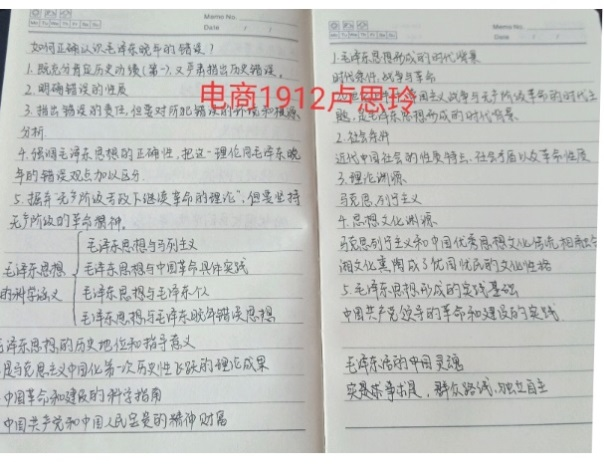 Memo No.
Date / /
如何正确认识毛泽东晚年的错误？
1. 既充分肯定历史功绩(第一), 又严肃指出历史错误。
2. 明确错误的性质
3. 指出错误的责任, 但要对所犯错误的
分析
4. 强调毛泽东思想的正确性, 把这一理论同毛泽东晚
年的错误观点加以区分
5. 摒弃"无产阶级专政下继续革命的理论", 但要坚持
无产阶级的革命精神。
毛泽东思想的科学涵义
毛泽东思想与马列主义
毛泽东思想与中国革命具体实践
毛泽东思想与毛泽东个人
毛泽东思想与毛泽东晚年错误思想
毛泽东思想的历史地位和指导意义
是马克思主义中国化第一次历史性飞跃的理论成果
中国革命和建设的科学指南
中国共产党和中国人民宝贵的精神财富
电商1912卢思玲
Memo No.
Date / /
1. 毛泽东思想形成的时代背景
时代条件, 战争与革命
国主义战争与无产阶级革命的时代主
题, 是毛泽东思想形成的时代背景。
2. 社会条件
近代中国社会的性质特点, 社会矛盾以及革命性质
3. 理论渊源
马克思列宁主义
4. 思想文化渊源
马克思列宁主义和中国优秀思想文化传统相结合
湘文化熏陶成了忧国忧民的文化性格
5. 毛泽东思想形成的实践基础
中国共产党领导的革命和建设的实践
毛泽东活的中国灵魂
实事求是, 群众路线, 独立自主